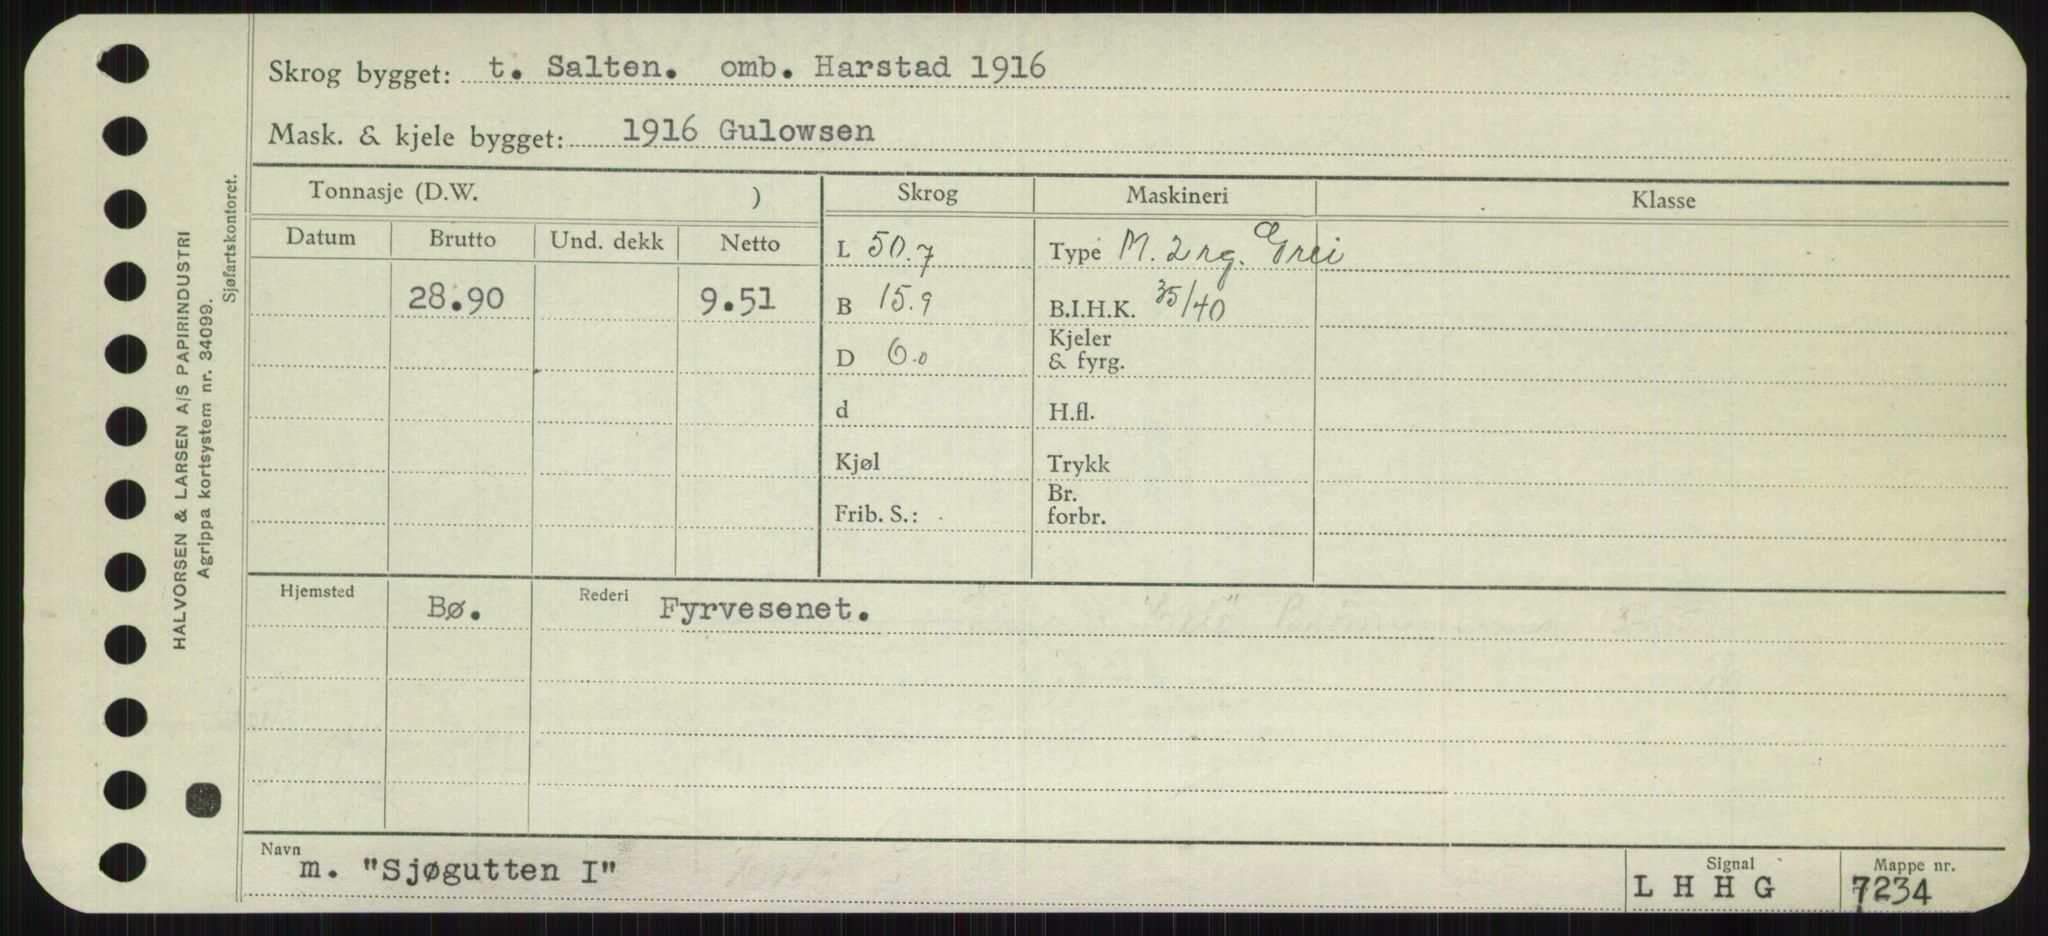 Skrog bygget: t. Salten. omb. Harstad 1916
Mask. & kjele bygget: 1916 Gulowsen
Tonnasje (D.W. ) Skrog Maskineri Klasse
Datum Brutto Und. dekk Netto
L 50.7 Type M. 2 rg. Grei
28.90 9.51 B 15.9 B.I.H.K. 35/40
D 6.0 Kjeler
& fyrg.
d H.fl.
Kjøl Trykk
Frib. S.: Br.
forbr.
Hjemsted Bø. Rederi Fyrvesenet.
Navn m. "Sjøgutten I" Signal L H H G Mappe nr. 7234
HALVORSEN & LARSEN A/S PAPIRINDUSTRI
Agrippa kortsystem nr. 34099.
Sjøfartskontoret.